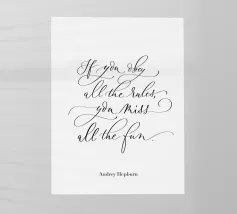 If you obey
all the rules,
you miss
all the fun.
Audrey Hepburn